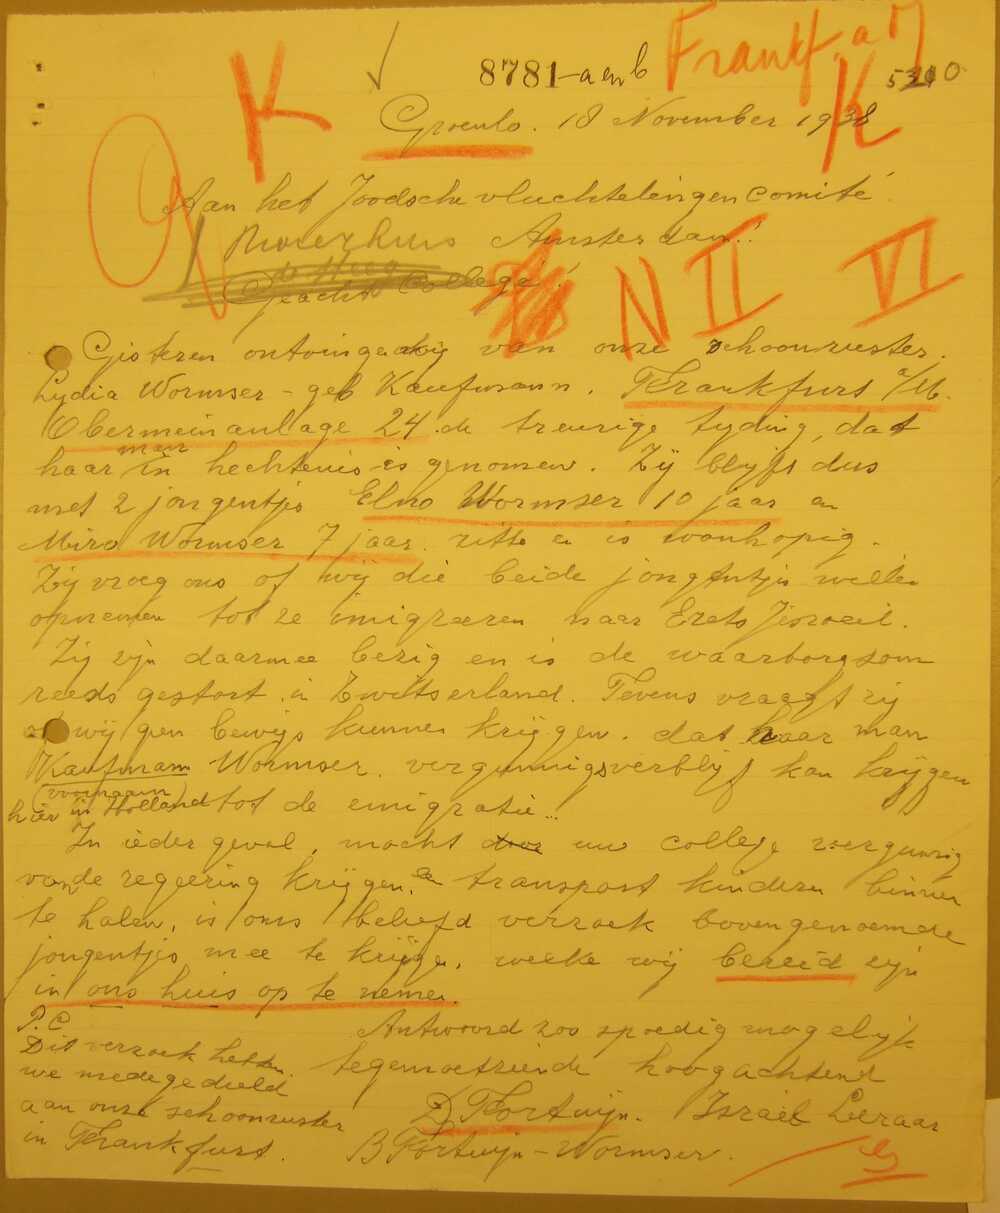 Frankf. a M
8781-a en b
5310
K
K
Groenlo. 18 November 1938
Aan het Joodsche vluchtelingen comité
Amsterdam!
Geacht College!
N II VI
Gisteren ontvingen wij van onze schoonzuster.
Lydia Wormser - geb Kaufmann. Frankfurt a/M.
Obermainanlage 24. de treurige tyding, dat
haar man in hechtenis is genomen. Zij blyft dus
met 2 jongentjes Elno Wormser 10 jaar en
Miro Wormser 7 jaar. zitten en is wanhopig.
Zij vroeg ons of wij die beide jongentjes willen
opnemen tot ze emigreeren naar Erets Jisroeil.
Zij zijn daarmee bezig en is de waarborgsom
reeds gestort in Zwitserland. Tevens vraagt zij
of wij geen bewijs kunnen krijgen. dat haar man
Kaufmann Wormser. vergunnigsverblijf kan krijgen
(voornaam)
hier in Holland tot de emigratie...
In ieder geval, mocht door uw college vergunnig
van de regeering krijgen, en transport kinderen binnen
te halen, is ons beleefd verzoek bovengenoemde
jongentjes mee te krijgen, welke wij bereid zijn
in ons huis op te nemen.
Antwoord zoo spoedig mogelijk
tegemoetziende hoogachtend
D. Fortuijn. Israël Leraar
B Fortuijn - Wormser.
P.C
Dit verzoek hebben
we medegedeeld
aan onze schoonzuster
in Frankfurt.